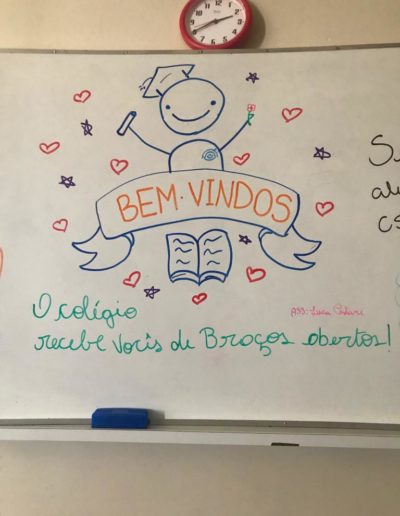 BEM-VINDOS
O colégio
recebe vocês de Braços abertos!
ASS: Luca